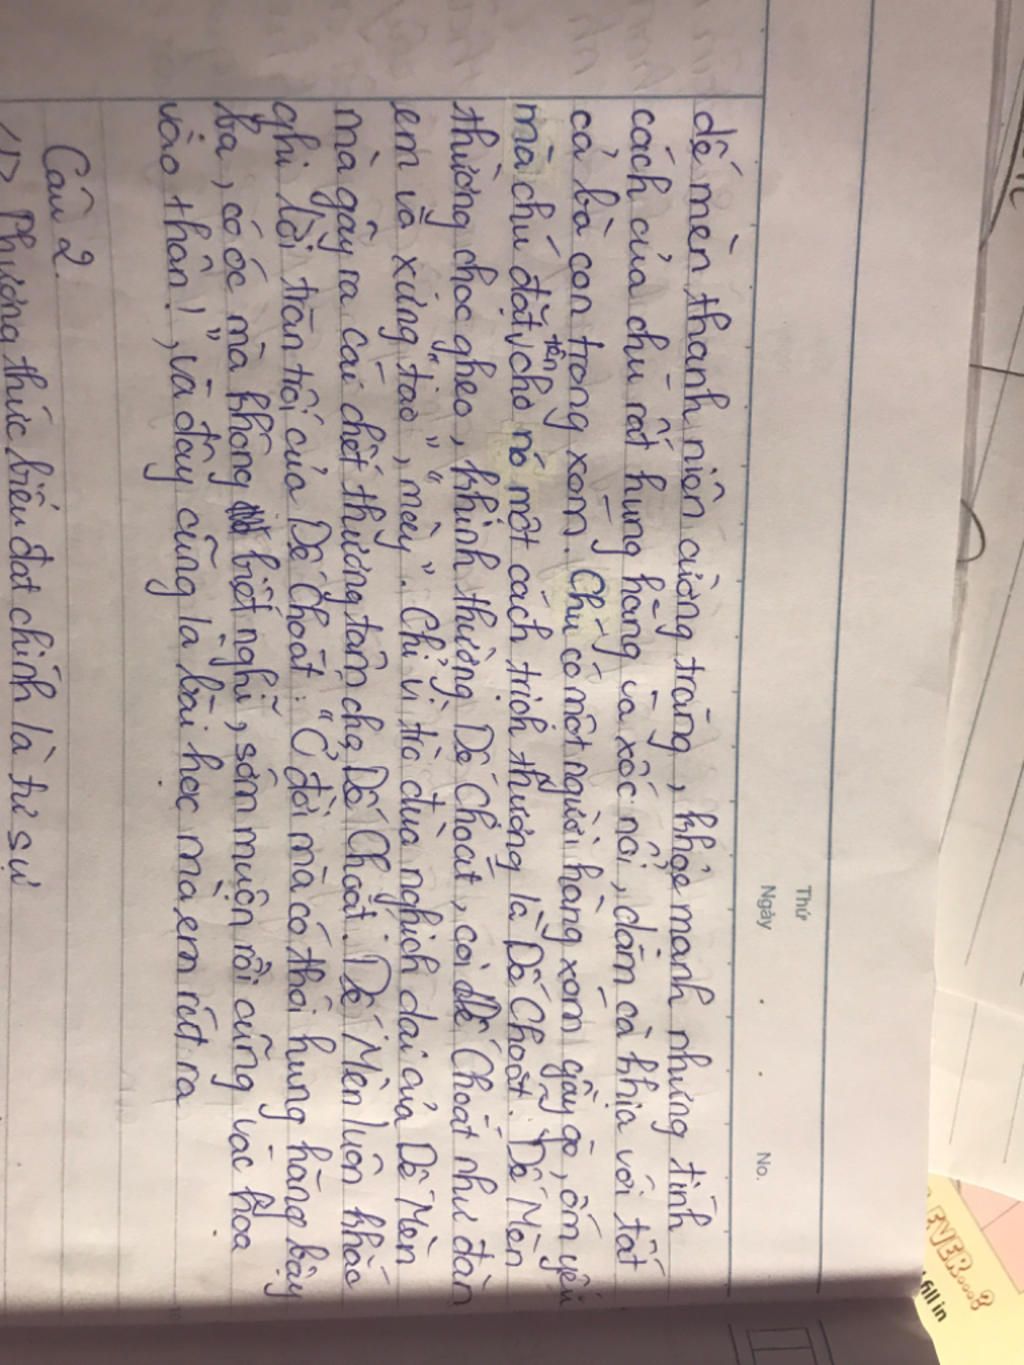 Thứ
Ngày
No.
dế mèn thanh niên cường tráng, khỏe mạnh nhưng tính
cách của chú rất hung hăng và xốc nổi, dám cà khịa với tất
cả bà con trong xóm. Chú có một người hàng xóm gầy gò, ốm yếu
mà chú đặt tên cho nó một cách trịch thượng là Dế Choắt. Dế Mèn
thường chọc ghẹo, khinh thường Dế Choắt, coi Dế Choắt như đàn
em và xưng "tao", "mày". Chỉ vì trò đùa nghịch dại của Dế Mèn
mà gây ra cái chết thương tâm cho Dế Choắt. Dế Mèn luôn khắc
ghi lời trăn trối của Dế Choắt: "Ở đời mà có thói hung hăng bậy
bạ, có óc mà không biết nghĩ, sớm muộn rồi cũng vác họa
vào thân!", và đây cũng là bài học mà em rút ra
Câu 2.
1> Phương thức biểu đạt chính là tự sự
EVER....?
fill in